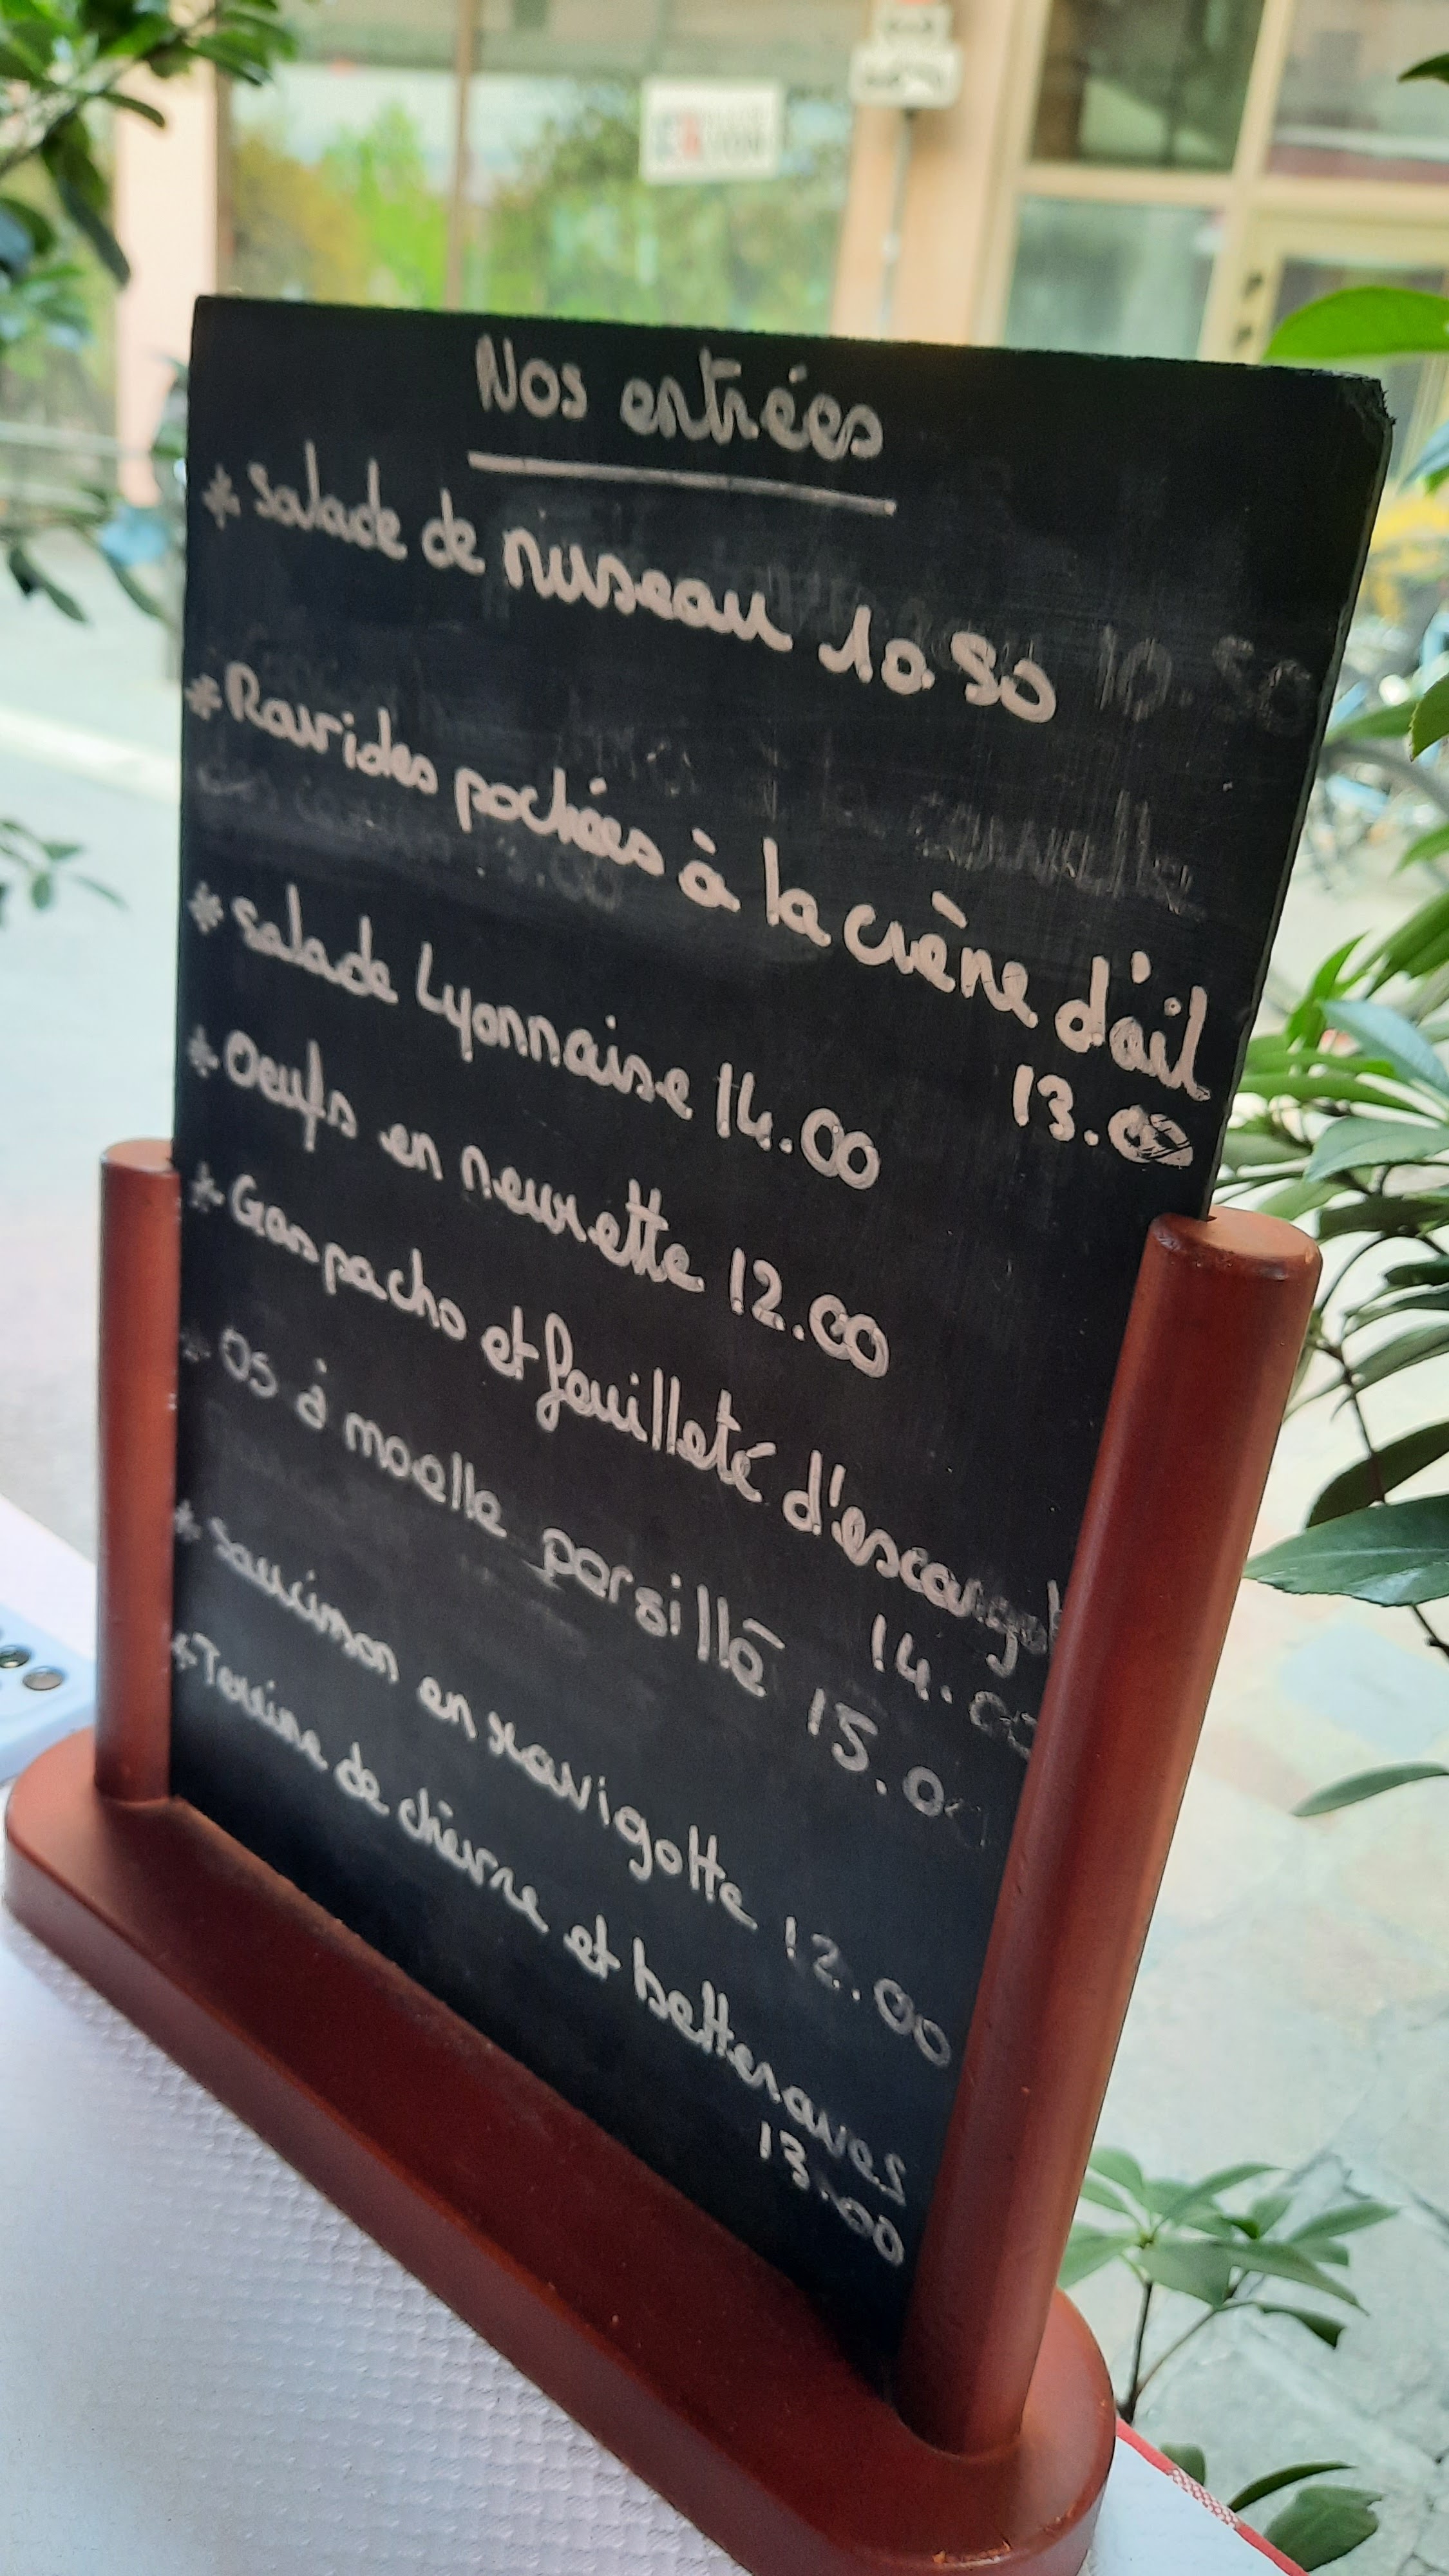 Nos entrées
* Salade de museau 10.50 10.50
* Ravioles pochées à la crème d'ail
13.00
* Salade Lyonnaise 14.00
* Oeufs en meurette 12.00
* Gaspacho et feuilleté d'escargot
14.00
* Os à moelle persillé 15.00
* Saucisson en ravigotte 12.00
* Terrine de chèvre et betteraves
13.00